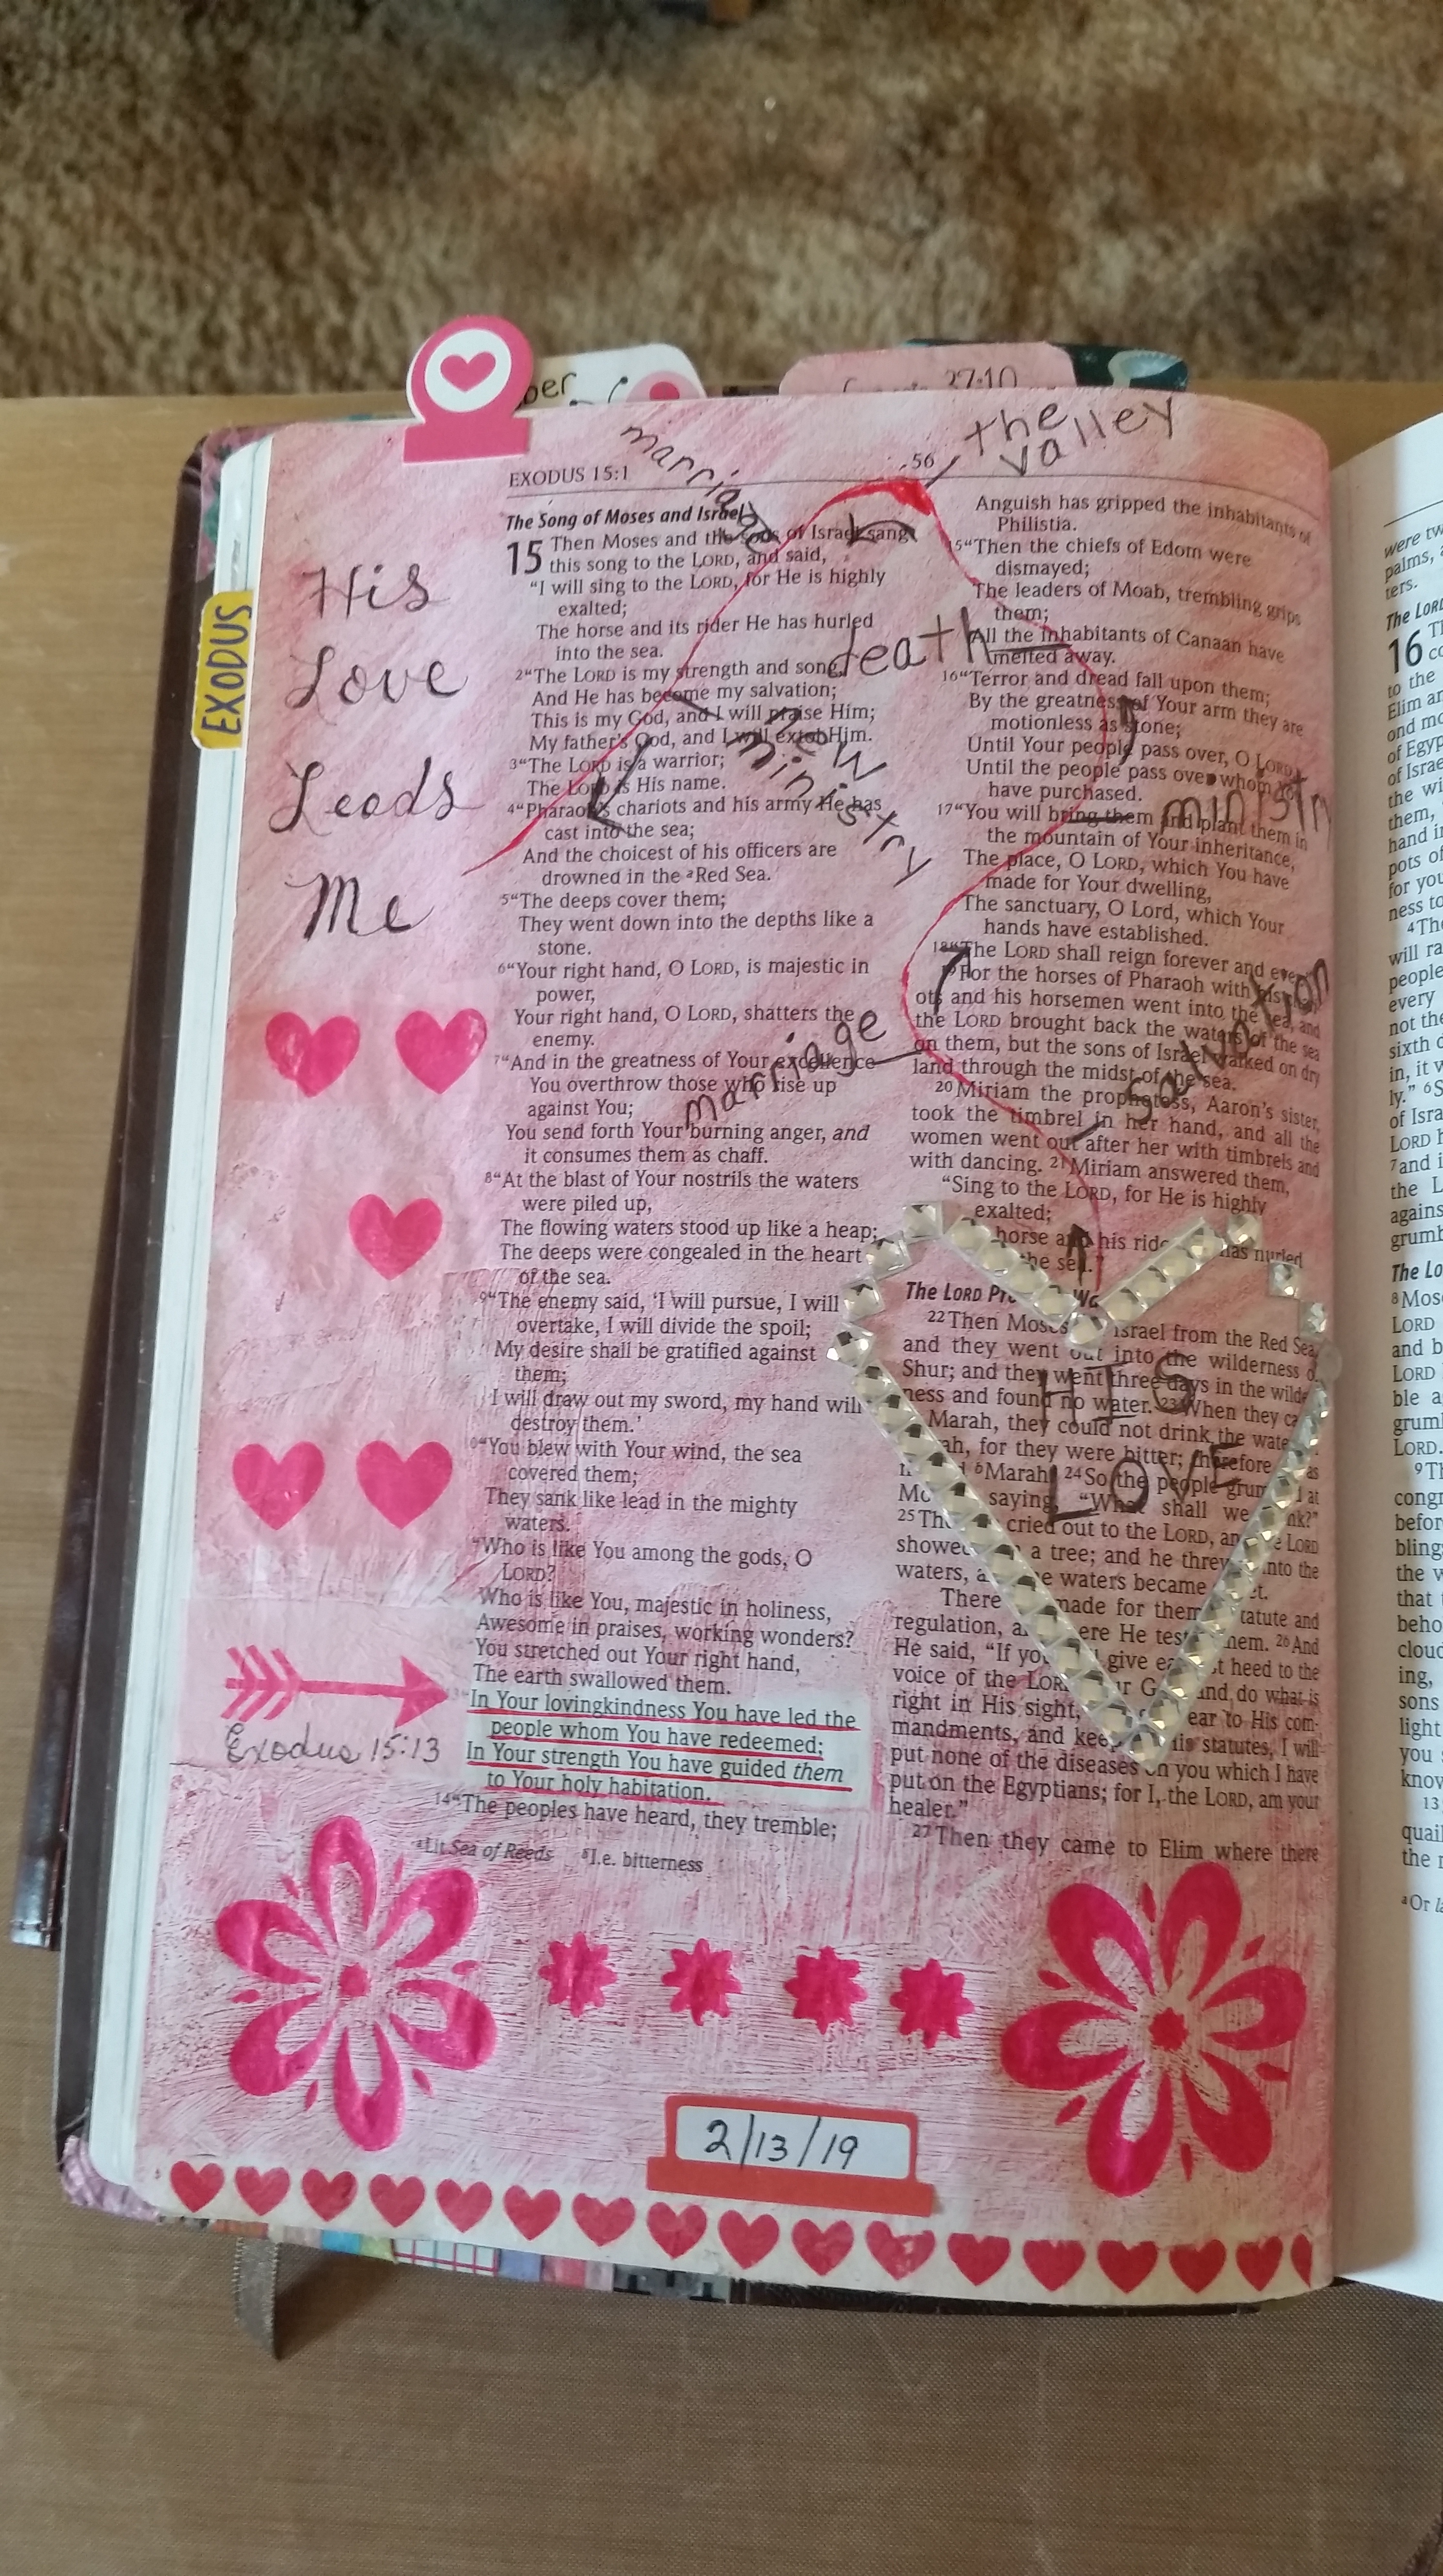 ber
27:10
the
valley
marriage
56
EXODUS 15:1
EXODUS
His
Love
Leads
Me
The Song of Moses and Israel
15 Then Moses and the sons of Israel sang
this song to the LORD, and said,
"I will sing to the LORD, for He is highly
exalted;
The horse and its rider He has hurled
into the sea.
2"The LORD is my strength and song,
And He has become my salvation;
This is my God, and I will praise Him;
My father's God, and I will extol Him.
3"The LORD is a warrior;
The LORD is His name.
4"Pharaoh's chariots and his army He has
cast into the sea;
And the choicest of his officers are
drowned in the aRed Sea.
5"The deeps cover them;
They went down into the depths like a
stone.
6"Your right hand, O LORD, is majestic in
power,
Your right hand, O LORD, shatters the
enemy.
7"And in the greatness of Your excellence
You overthrow those who rise up
against You;
You send forth Your burning anger, and
it consumes them as chaff.
8"At the blast of Your nostrils the waters
were piled up,
The flowing waters stood up like a heap;
The deeps were congealed in the heart
of the sea.
9"The enemy said, 'I will pursue, I will
overtake, I will divide the spoil;
My desire shall be gratified against
them;
I will draw out my sword, my hand will
destroy them.'
"You blew with Your wind, the sea
covered them;
They sank like lead in the mighty
waters.
"Who is like You among the gods, O
LORD?
Who is like You, majestic in holiness,
Awesome in praises, working wonders?
You stretched out Your right hand,
The earth swallowed them.
In Your lovingkindness You have led the
people whom You have redeemed;
In Your strength You have guided them
to Your holy habitation.
14"The peoples have heard, they tremble;
Exodus 15:13
aLit Sea of Reeds bI.e. bitterness
death
new
ministry
marriage
ministry
salvation
Anguish has gripped the inhabitants of
Philistia.
15"Then the chiefs of Edom were
dismayed;
The leaders of Moab, trembling grips
them;
All the inhabitants of Canaan have
melted away.
16"Terror and dread fall upon them;
By the greatness of Your arm they are
motionless as stone;
Until Your people pass over, O LORD,
Until the people pass over whom You
have purchased.
17"You will bring them and plant them in
the mountain of Your inheritance,
The place, O LORD, which You have
made for Your dwelling,
The sanctuary, O Lord, which Your
hands have established.
18"The LORD shall reign forever and ever
For the horses of Pharaoh with his
ots and his horsemen went into the sea, and
the LORD brought back the waters of the sea
on them, but the sons of Israel walked on dry
land through the midst of the sea.
20Miriam the prophetess, Aaron's sister,
took the timbrel in her hand, and all the
women went out after her with timbrels and
with dancing. 21Miriam answered them,
"Sing to the LORD, for He is highly
exalted;
horse and his ride has hurled
the sea."
The LORD Pro Wa
22Then Moses Israel from the Red Sea,
and they went out into the wilderness o
Shur; and they went three days in the wilde
ness and found no water. 23When they ca
Marah, they could not drink the wate
ah, for they were bitter; therefore as
bMarah. 24So the people grum at
Mo saying, "What shall we nk?"
25The cried out to the LORD, an e LORD
showed a tree; and he threw into the
waters, a e waters became et.
There made for them tatute and
regulation, a ere He test hem. 26And
He said, "If yo give ea t heed to the
voice of the LORD ur G and do what is
right in His sight, ear to His com-
mandments, and keep His statutes, I will
put none of the diseases on you which I have
put on the Egyptians; for I, the LORD, am your
healer."
27Then they came to Elim where there
HIS
LOVE
2/13/19
were tw
palms,
ters.
The LORD
16
to the
Elim an
and mo
of Egyp
of Israe
the wi
them,
hand i
pots of
for you
ness to
4The
will ra
people
every
not the
sixth d
in, it w
ly." 6S
of Isra
LORD
7and i
the L
agains
grumb
The Lo
8Mose
LORD
and b
LORD
ble a
grum
LORD.
9T
congr
befor
bling
the w
that
beho
cloud
ing,
sons
light
you
know
13
quail
the
aOr